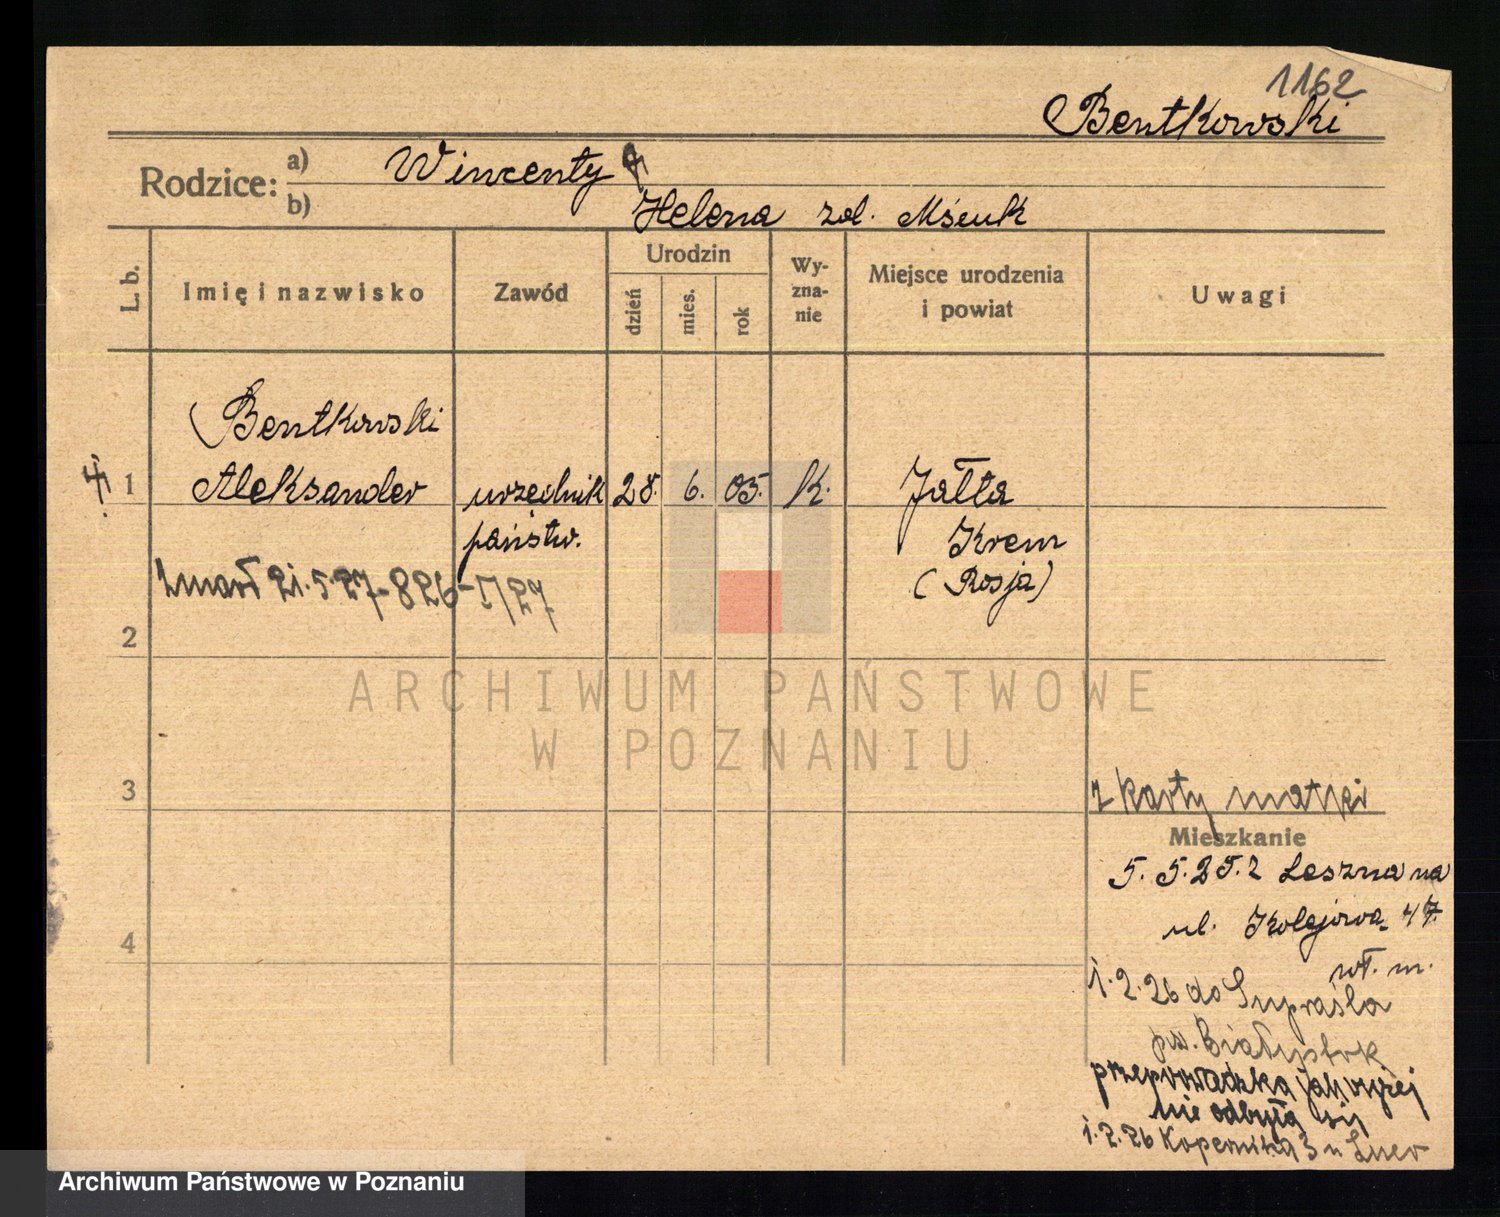 1162
Bentkowski
Rodzice: a) Wincenty
b) Helena zd.
L. b. Imię i nazwisko Zawód Urodzin Wy- zna- nie Miejsce urodzenia i powiat Uwagi
dzień mies. rok
Bentkowski
1 Aleksander urzędnik 28. 6. 05. K. Jałta
państw. Krem
(Rosja)
zmarł 21.5.27 - 826 - V/27
2
ARCHIWUM PAŃSTWOWE
W POZNANIU
3
z karty matki
Mieszkanie
5. 5. 25. z Leszna na
ul. Kolejowa 47.
4
wł. m.
1.2.26 do Supraśla
pw. Białystok
przeprowadzka jak wyżej
nie odbyła się
1.2.26 Kopernika 3 u
Archiwum Państwowe w Poznaniu